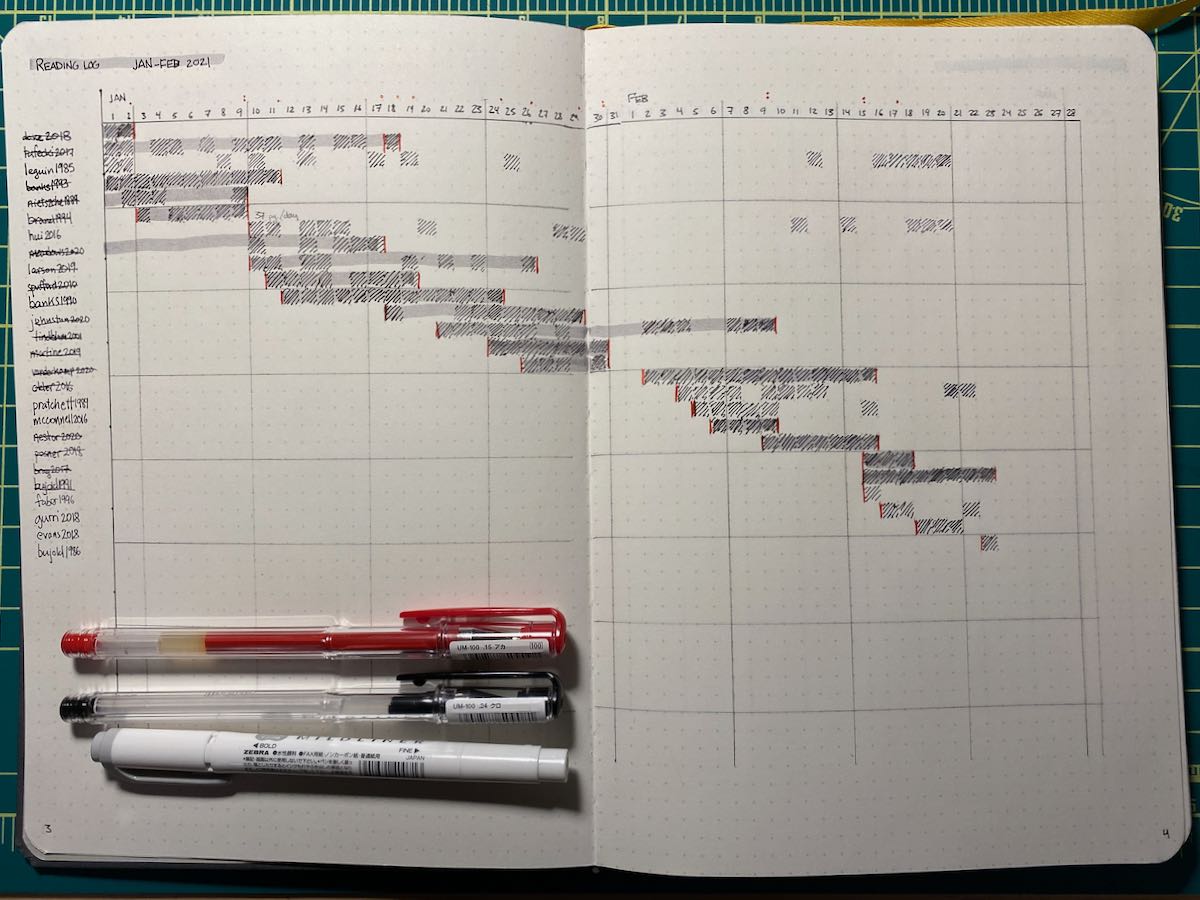 READING LOG JAN-FEB 2021
JAN
1 2 3 4 5 6 7 8 9 10 11 12 13 14 15 16 17 18 19 20 21 22 23 24 25 26 27 28 29
FEB
30 31 1 2 3 4 5 6 7 8 9 10 11 12 13 14 15 16 17 18 19 20 21 22 23 24 25 26 27 28
2018
tufecki2017
leguin1985
banks1993
nietzsche1889
brand1994
57 pg/day
hui2016
meadows2020
larson2019
spufford2010
banks1990
johnstun2020
lindblom2001
martine2019
vanderkamp2020
older2016
pratchett1989
mcconnell2016
nestor2020
posner2018
2017
bujold1991
faber1996
gurri2018
evans2018
bujold1986
UM-100 .15 アカ
[100]
UM-100 .24 クロ
◀BOLD
FINE▶
ZEBRA
JAPAN
30
3
4